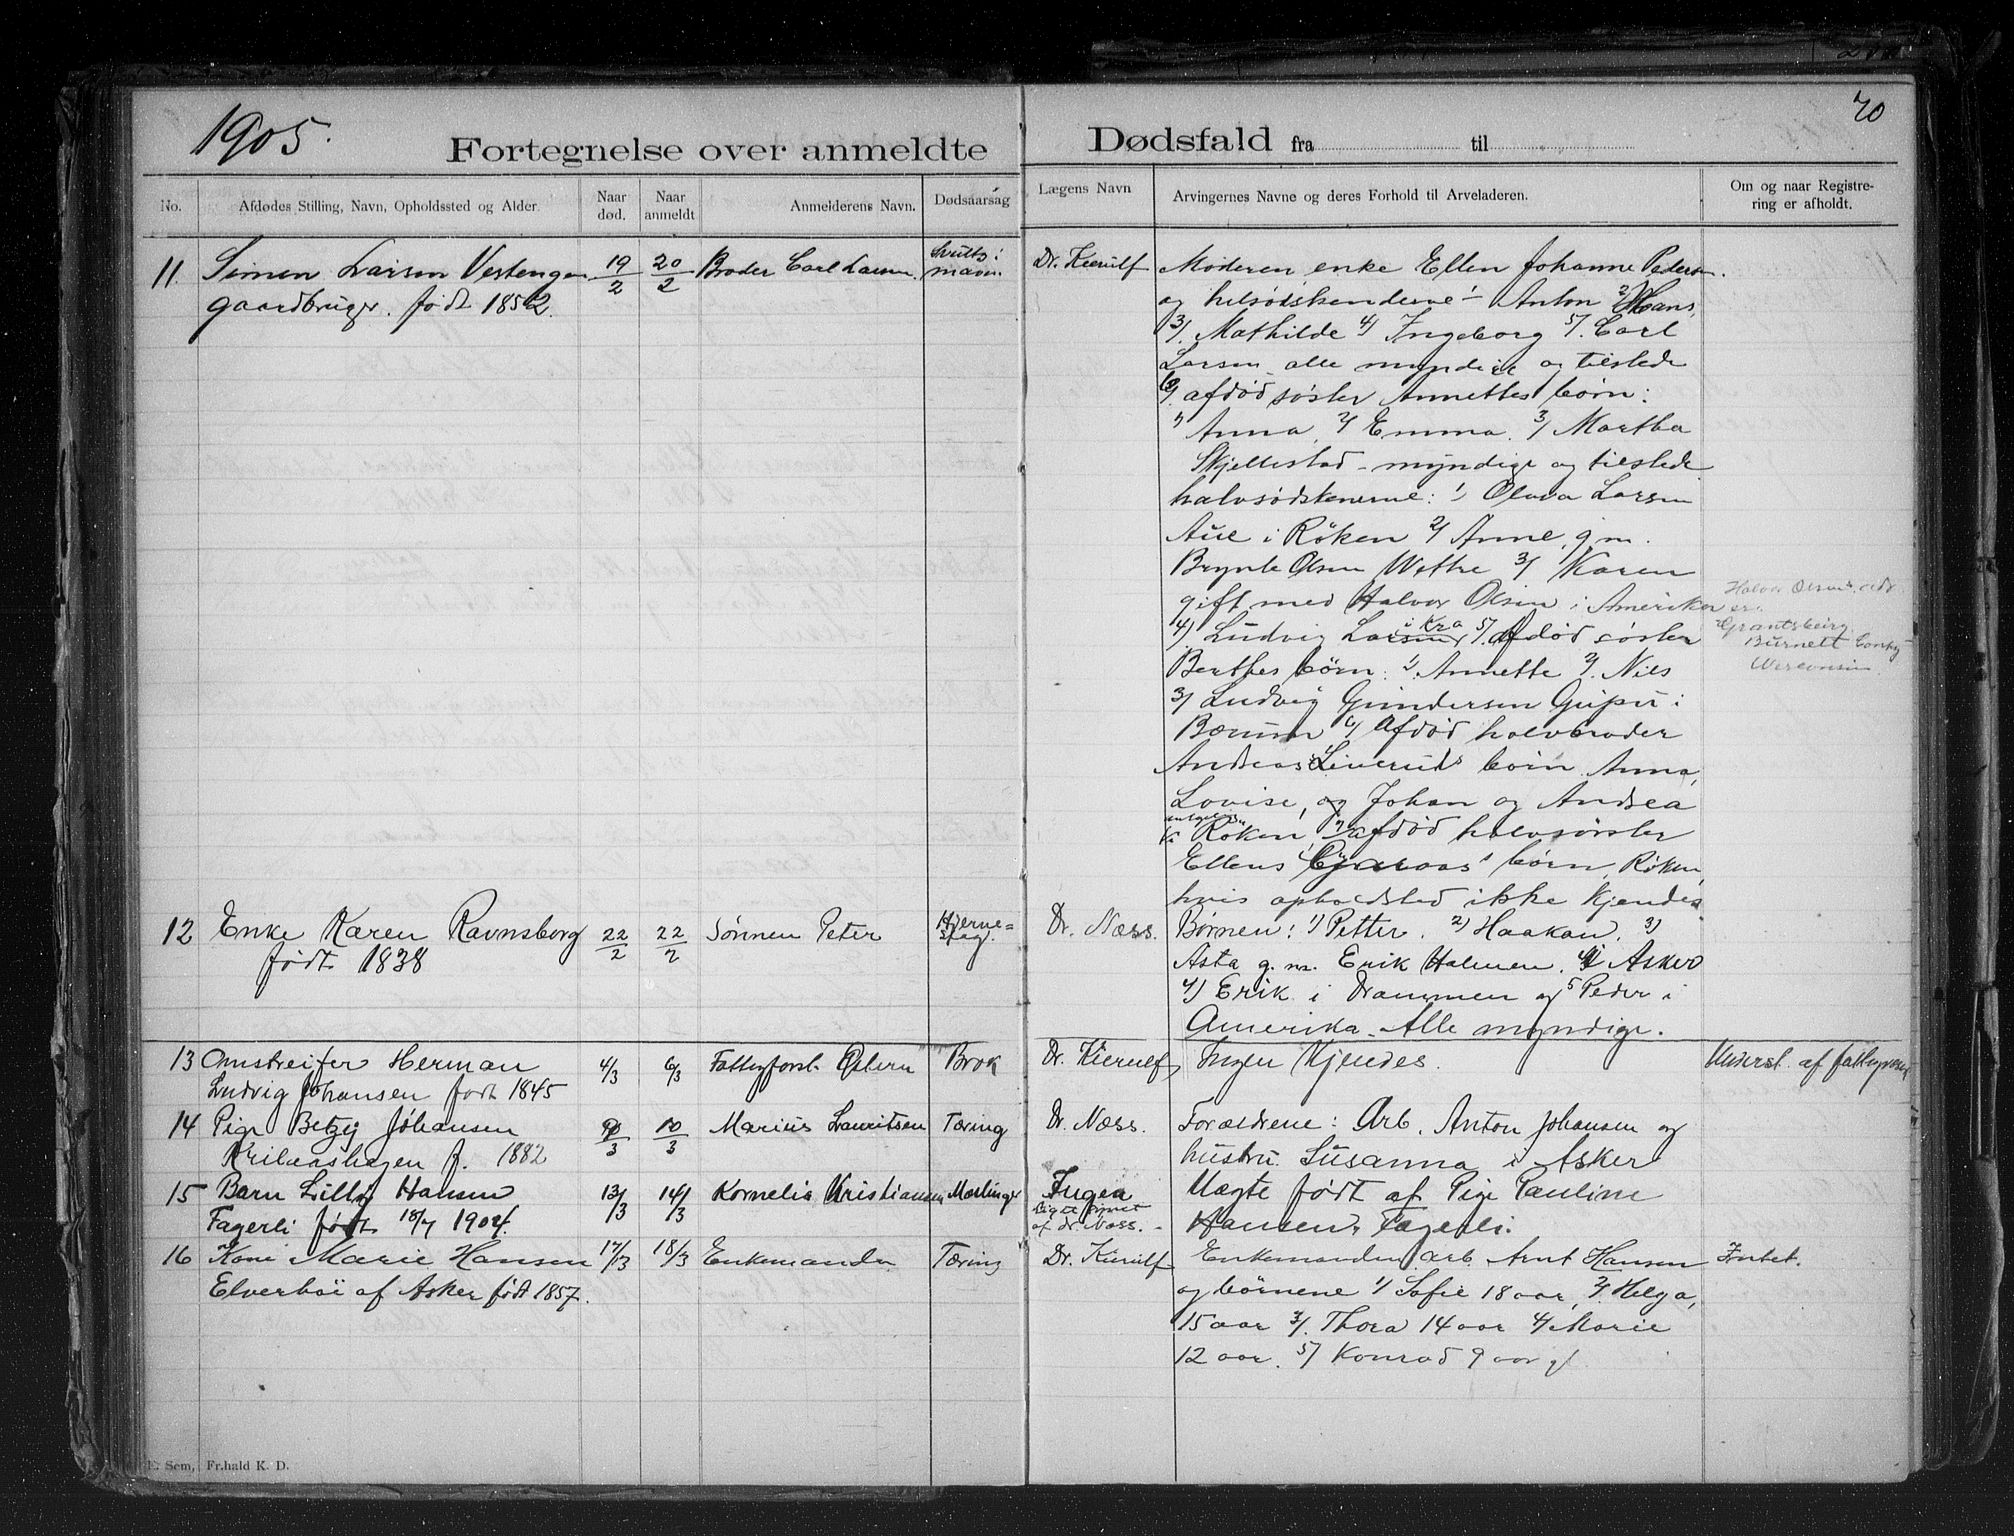 1905.
70
Fortegnelse over anmeldte Dødsfald fra til
No.
Afdødes Stilling, Navn, Opholdssted og Alder.
Naar død.
Naar anmeldt
Anmelderens Navn.
Dødsaarsag
Lægens Navn
Arvingernes Navne og deres Forhold til Arveladeren.
Om og naar Registre-
ring er afholdt.
11. Simen Larsen Vestengen 19/2 20/2 Broder Carl Larsen
gaardbruger. født 1852.
Dr. Kierulf
Moderen enke Ellen Johanne Pedersen.
og helsødskendene 1 Anton 2/ Hans,
3/. Mathilde 4/ Ingeborg 5/. Carl
Larsen alle myndige og tilstede
6/. afdød søster Annettes børn:
1/ Anna, 2/ Emma. 3/ Martha
Skjellestad - myndige og tilstede
halvsødskenerne: 1/ Olava Larsen
Aue i Røken 2/ Anne, g.m.
Brynte Olsen Wethe 3/ Karen
gift med Halvor Olsen i Amerika
4/ Ludvig Larsen i Kra 5/. Afdød søster
Berthes børn: 1/. Annette 2/. Nils
3/ Ludvig Gundersen Gupu i
Bærum 6/ Afdød halvbroder
Andreas Liveruds børn Anna,
Lovise, og Johan og Andrea
Røken, 7/ afdød halvsøster
Ellens børn, Røken,
hvis opholdsted ikke kjendes
Halvor Olsens adr
er.
Grantsberg
Burnett Conty
Wisconsin
12 Enke Karen Ravnsborg 22/2 22/2 Sønnen Peter Hjerne-
slag.
født 1838
Dr. Næss. Børnene: 1) Petter. 2) Haakan. 3)
Asta g. m. Erik Halmen. i Asker
4) Erik i Drammen og 5 Peder i
Amerika. Alle myndige.
13 Omstreifer Herman 4/3 6/3 Fattigforst. Østern Brok
Ludvig Johansen født 1845
Dr. Kierulf, Ingen Kjendes. Underst. af fattigvæsen
14 Pige Betzy Johansen 9/3 10/3 Marius Lauritsen Tæring
f. 1882
Dr. Næss. Forældrene: Arb. Anton Johansen og
hustru Susanna i Asker
15 Barn Lilly Hansen 13/3 14/3 Kornelia Kristiansen Mæslinger
Fagerli født 18/7 1904.
Ingen
af dr. Næss. -
Uægte født af Pige Pauline
Hansen, Fagerli.
16 Kone Marie Hansen 17/3 18/3 Enkemanden Tæring
Elverhøi af Asker født 1857.
Dr. Kierulf Enkemanden arb. Arnt Hansen Intet.
og børnene 1/ Sofie 18 aar, 2/. Helga,
15 aar 3/. Thora 14 aar 4/ Marie
12 aar. 5/ Konrad 9 aar gl
E. Sem, Fr.hald K. D.